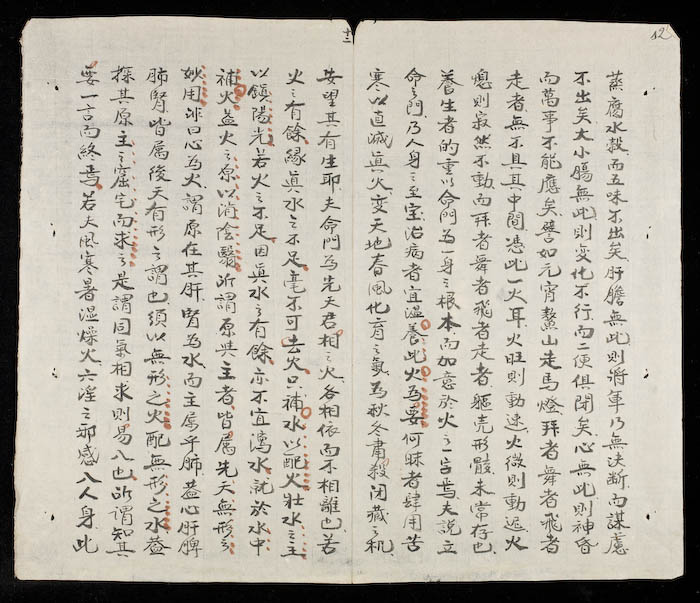 12
蒸腐水穀而五味不出矣肝膽無此則將軍乃無決斷而謀慮
不出矣大小腸無此則变化不行而二便俱閉矣心無此則神昏
而萬事不能應矣譬如元宵鰲山走馬燈拜者舞者飛者
走者無不具其中間憑此一火耳火旺則動速火微則動遲火
熄則寂然不動而拜者舞者飛者走者軀壳形骸未常存也
養生者的重以命門為一身之根本而加意於火之一字焉夫說立
命之門乃人身之至宝治病者宜温養此火為要何昧者肆用苦
寒以直滅真火变天地春風化育之氣為秋冬肅殺闭藏之机
十二
安望其有生耶夫命門為先天君相之火各相依而不相離也若
火之有餘緣真水之不足毫不可去火只補水以配火壯水之主
以鎮陽光若火之不足因真水之有餘亦不宜瀉水就於水中
補火益火之原以消陰翳所謂原與主者皆属先天無形之
妙用非曰心為火謂原在其肝腎為水而主属乎肺蓋心肝脾
肺腎皆属後天有形之謂也須以無形之火配無形之水蓋
探其原主之窟宅而求之是謂同氣相求則易入也所謂知其
要一言而終焉若夫風寒暑湿燥火六淫之邪感入人身此